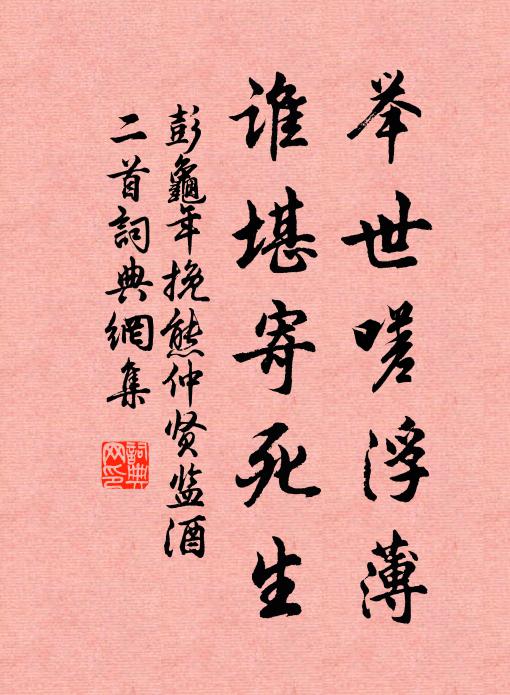 举世嗟浮薄
谁堪寄死生
彭龜年挽熊仲贤监酒
二首詞典網集
詞典
网印